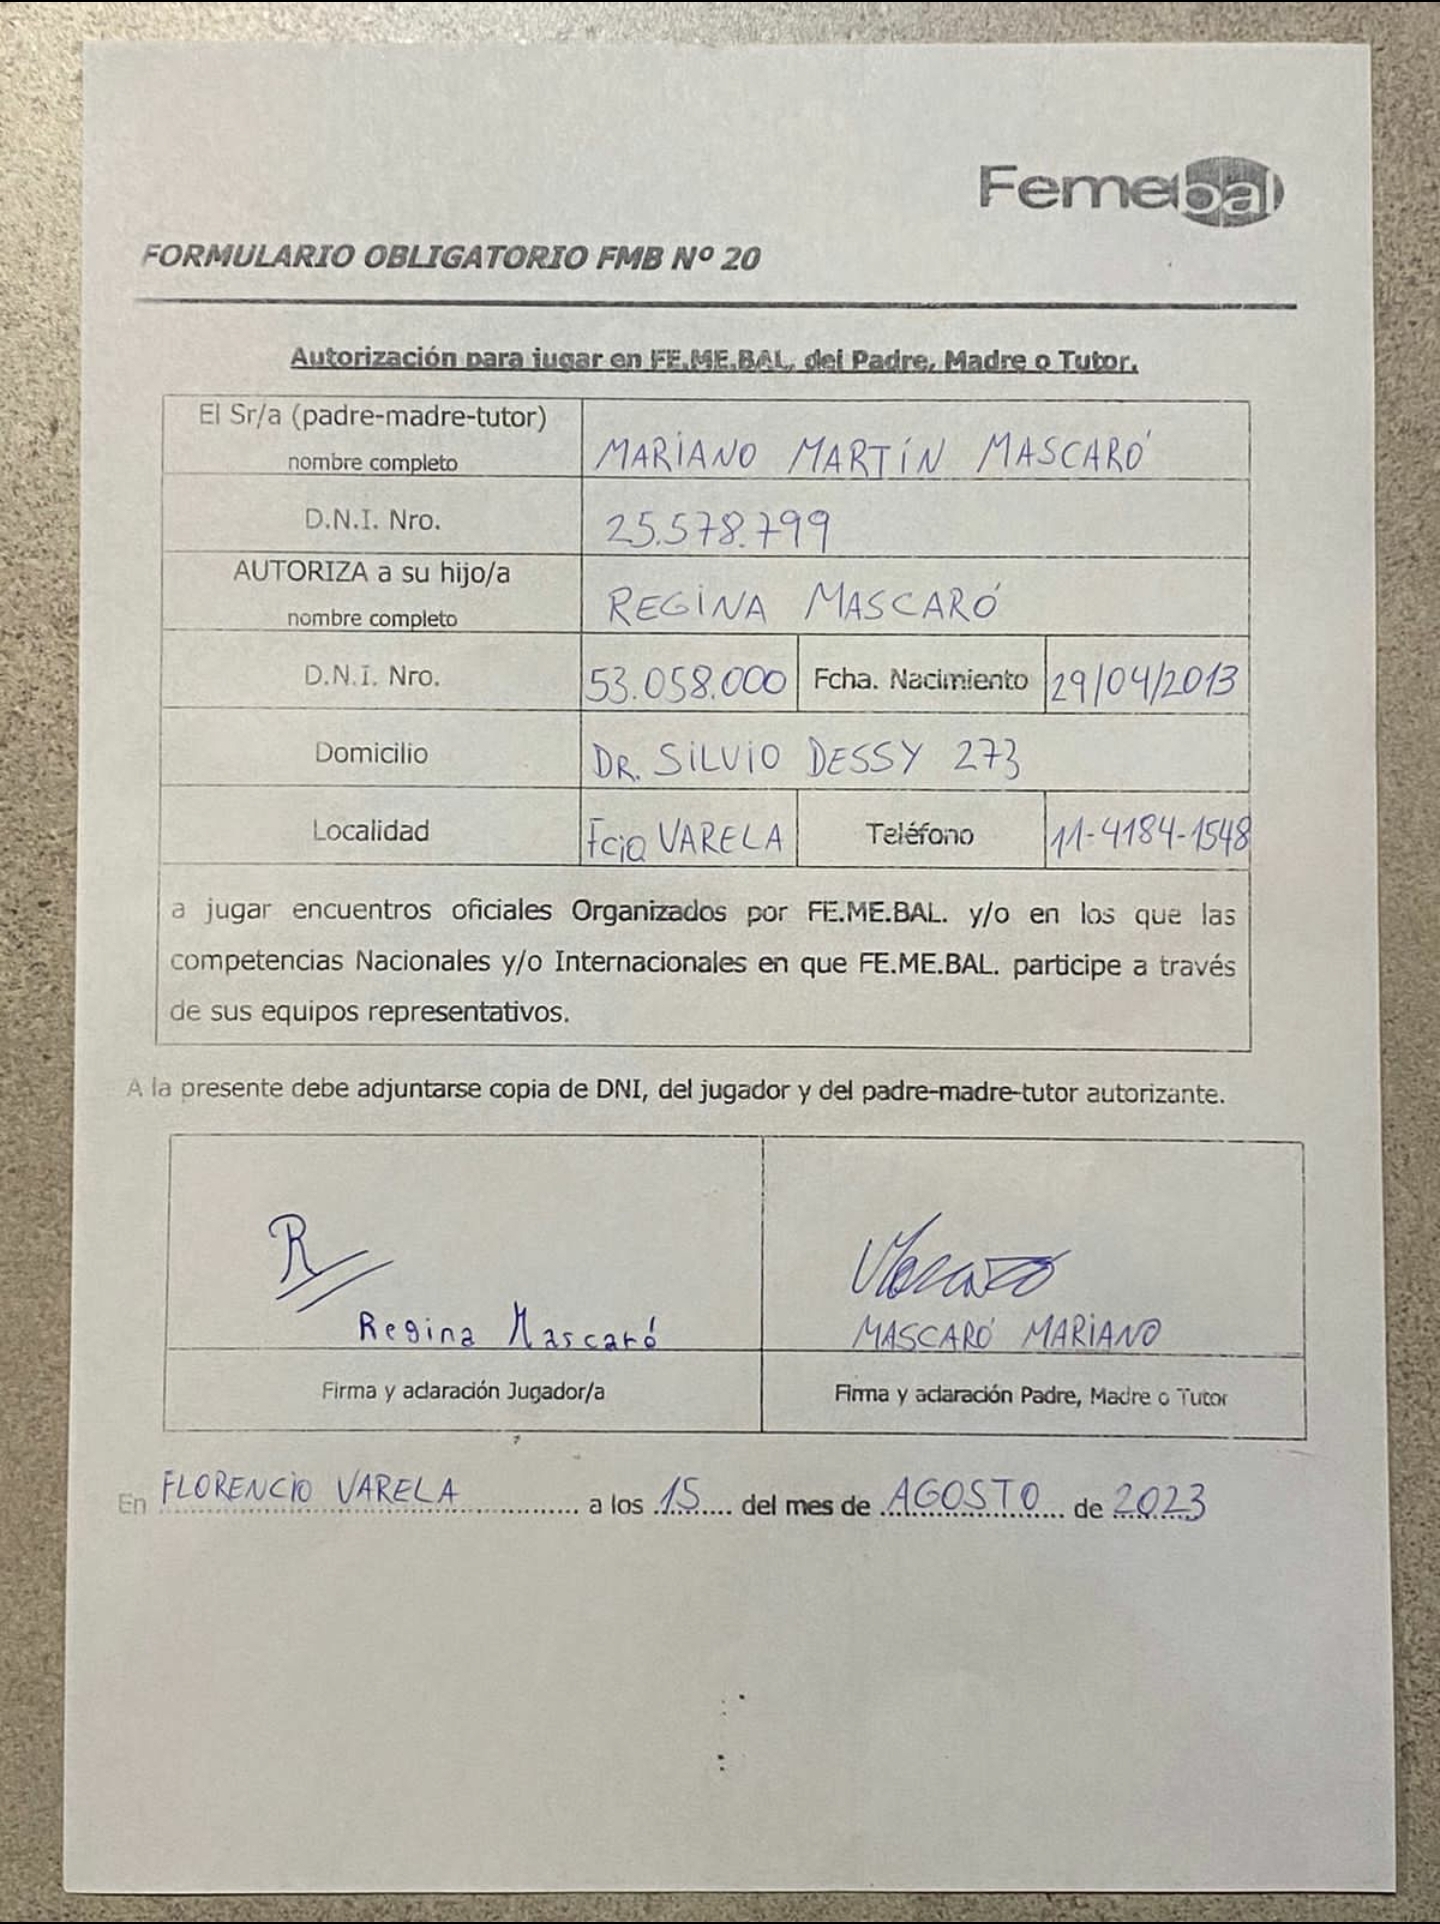 Femebal
FORMULARIO OBLIGATORIO FMB Nº 20
Autorización para jugar en FE.ME.BAL. del Padre, Madre o Tutor.
El Sr/a (padre-madre-tutor)
nombre completo
MARIANO MARTÍN MASCARÓ
D.N.I. Nro.
25.578.799
AUTORIZA a su hijo/a
nombre completo
REGINA MASCARÓ
D.N.I. Nro.
53.058.000
Fcha. Nacimiento
29/04/2013
Domicilio
DR. SILVIO DESSY 273
Localidad
Fcio VARELA
Teléfono
11-4184-1548
a jugar encuentros oficiales Organizados por FE.ME.BAL. y/o en los que las
competencias Nacionales y/o Internacionales en que FE.ME.BAL. participe a través
de sus equipos representativos.
A la presente debe adjuntarse copia de DNI, del jugador y del padre-madre-tutor autorizante.
R
Regina Mascaró
Mascaró
MASCARÓ MARIANO
Firma y aclaración Jugador/a
Firma y aclaración Padre, Madre o Tutor
En FLORENCIO VARELA a los 15 del mes de AGOSTO de 2023